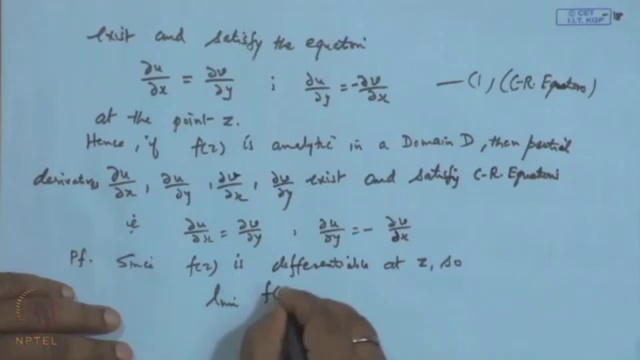 © CET
I.I.T. KGP
exist and satisfy the equation
∂u/∂x = ∂v/∂y ; ∂u/∂y = -∂v/∂x —(1) (C-R. Equations)
at the point z.
Hence, if f(z) is analytic in a Domain D, then partial
derivatives ∂u/∂x, ∂u/∂y, ∂v/∂x, ∂v/∂y exist and satisfy C-R Equations
ie ∂u/∂x = ∂v/∂y , ∂u/∂y = - ∂v/∂x
Pf. Since f(z) is differentiable at z, so
lim f(
NPTEL